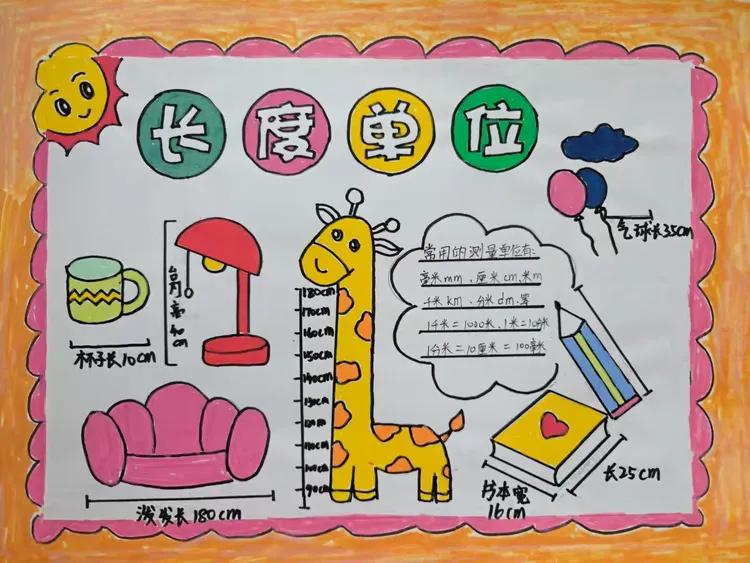 长度单位
气球长35cm
台灯高40cm
杯子长10cm
沙发长180cm
180cm
170cm
160cm
150cm
140cm
130cm
120cm
110cm
100cm
90cm
常用的测量单位有:
毫米mm、厘米cm、米m
千米km、分米dm、等
1千米=1000米、1米=10分米
1分米=10厘米=100毫米
长25cm
书本宽
16cm